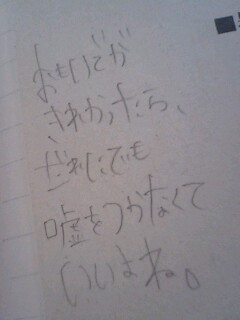 おもいでが
きれかったら、
だれにでも
嘘をつかなくて
いいよね。